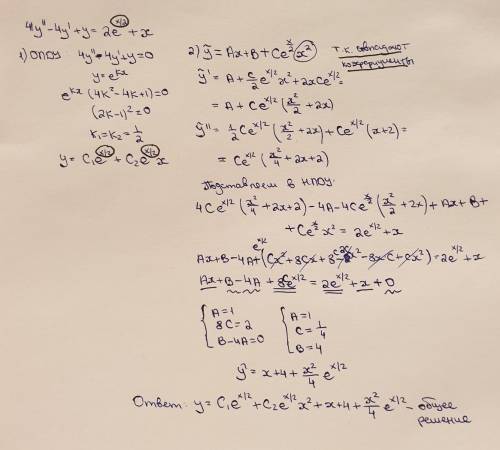 4y'' - 4y' + y = 2e^{x/2} + x
1) ОЛОУ: 4y'' - 4y' + y = 0
y = e^{kx}
e^{kx} (4k² - 4k + 1) = 0
(2k - 1)² = 0
k₁ = k₂ = 1/2
y = C₁e^{x/2} + C₂e^{x/2} x
2) ỹ = Ax + B + Ce^{x/2} x²
т.к. совпадают
коэффициенты
ỹ' = A + C/2 e^{x/2} x² + 2xCe^{x/2} =
= A + Ce^{x/2} (x²/2 + 2x)
ỹ'' = 1/2 Ce^{x/2} (x²/2 + 2x) + Ce^{x/2} (x + 2) =
= Ce^{x/2} (x²/4 + 2x + 2)
Подставляем в НЛОУ:
4Ce^{x/2} (x²/4 + 2x + 2) - 4A - 4Ce^{x/2} (x²/2 + 2x) + Ax + B +
+ Ce^{x/2} x² = 2e^{x/2} + x
Ax + B - 4A + e^{x/2} (Cx² + 8Cx + 8C - 2Cx² - 8xC + Cx²) = 2e^{x/2} + x
Ax + B - 4A + 8Ce^{x/2} = 2e^{x/2} + x + 0
{ A = 1 { A = 1
8C = 2 C = 1/4
B - 4A = 0 B = 4
ỹ = x + 4 + x²/4 e^{x/2}
Ответ: y = C₁e^{x/2} + C₂e^{x/2} x² + x + 4 + x²/4 e^{x/2} - общее
решение